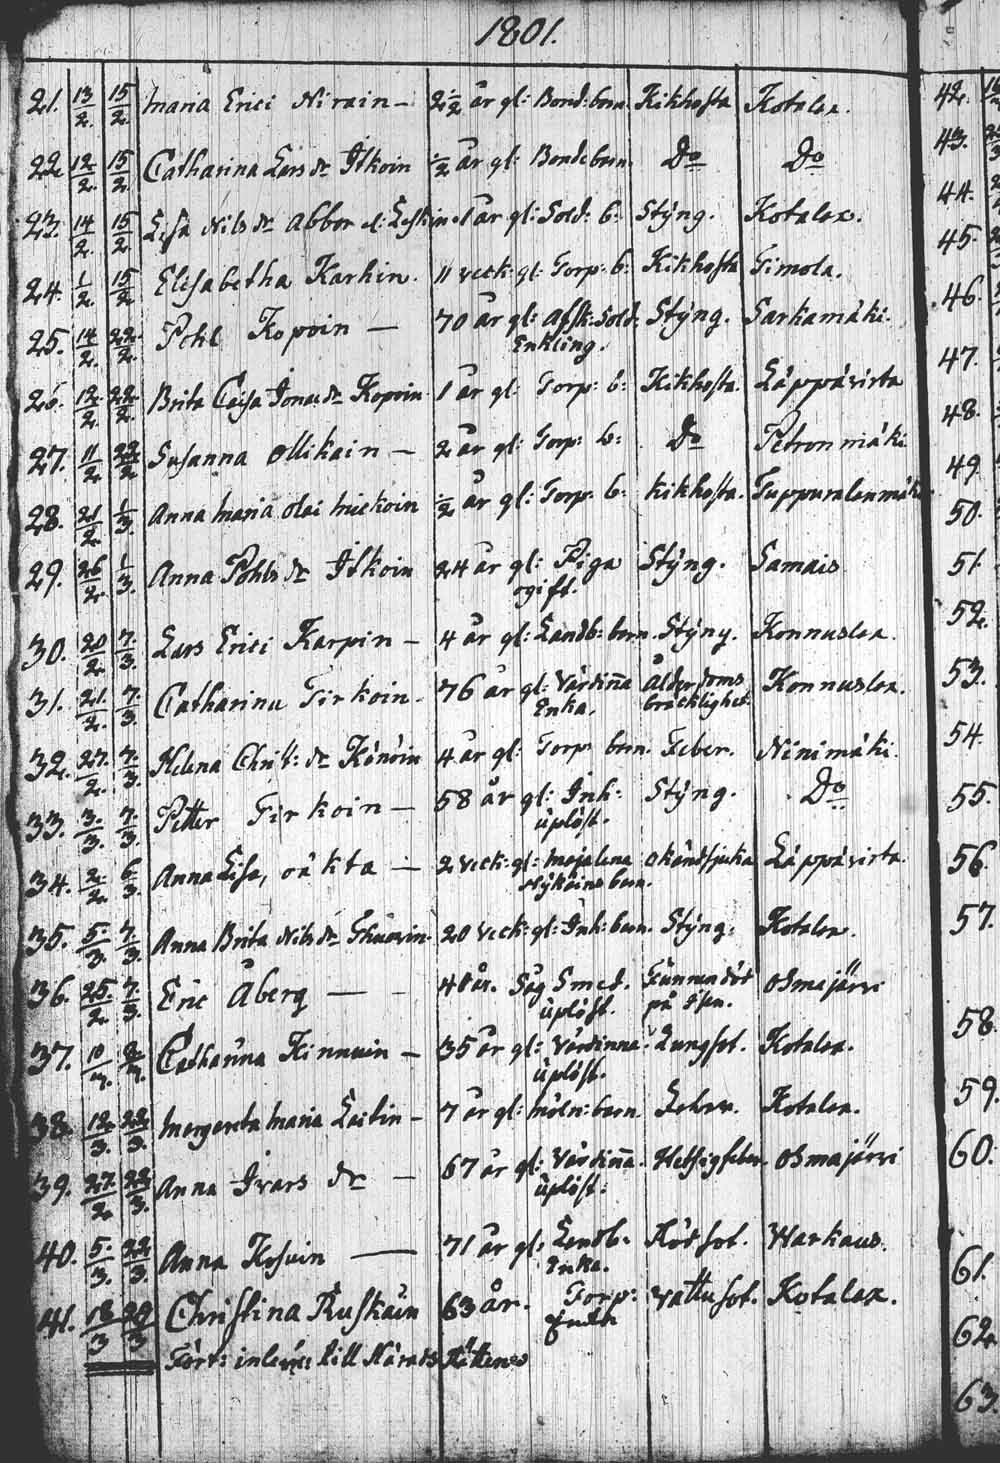 1801.
21. 13/2. 15/2. Maria Erici Nirain – 2 1/2 år gl: Bond: barn Kikhosta Kotalax.
22. 12/2. 15/2. Catharina Lars dr Itkoin 1/2 år gl: Bondebarn. Do Do
23. 14/2. 15/2. Lisa Nils dr Abbor el: Leskin. 1 år gl: Sold: b: Styng. Kotalax.
24. 1/2. 15/2. Elisabetha Karhin. 11 veck: gl: Torp: b: Kikhosta Timola.
25. 14/2. 22/2. Pohl Kopoin — 70 år gl: Afsk: Sold. Styng. Sarkamäki.
Enkling.
26. 12/2. 22/2. Brita Caisa Jonae dr Kopoin 1 år gl: Torp: b: Kikhosta. Läppävirta
27. 11/2. 22/2 Susanna Ollikain — 2 år gl: Torp: b: Do Petronmäki
28. 21/2. 1/3. Anna Maria Olai 1/2 år gl: Torp. b: Kikhosta. Tuppuralanmäki
29. 26/2. 1/3. Anna Pohls dr Itkoin 24 år gl: Piga Styng. Samais
ogift.
30. 20/2. 7/3. Lars Erici Karpin – 4 år gl: Landb: barn. Styng. Konnuslax.
31. 21/2. 7/3. Catharina Tirkoin. 76 år gl: Värdiña Ålderdoms Konnuslax.
Enka. bräcklighet
32. 27/2. 7/3. Helena Christ: dr Könöin 4 år gl: Torp barn. Feber. Ninimäki.
33. 3/3. 7/3. Petter Tirkoin — 58 år gl: Inh: Styng. Do
uplöst.
34. 2/2. 6/3. Anna Lisa, oäkta — 2 veck: gl: Majalena okändsjuka Läppävirta.
Nykäins barn.
35. 5/3. 7/3. Anna Brita Nils dr 20 veck: gl: Inh: barn. Styng. Kotalax.
36. 25/2. 7/3. Eric Åberg — – 48 år. Såg Smed. Funnen död Osmajärvi
uplöst. på isen.
37. 10/3. Catharina Kinnuin – 35 år gl: Värdinna. Lungsot. Kotalax.
uplöst.
38. 12/3. 22/3. Margareta Maria Laitin – 7 år gl: Möln: barn Feber. Kotalax.
39. 27/2. 22/3. Anna Ivars dr – 67 år gl: Värdiña. Hetsigfeber. Osmajärvi
uplöst:
40. 5/3. 22/3. Anna Kosuin — 71 år gl: Landb. Rödsot. Warkaus.
Enka.
41. 18/3 29/3 Christina Ruskain 63 år. Torp: Vattusot. Kotalax.
till Härads Rätten
42.
43.
44.
45.
46.
47.
48.
49.
50.
51.
52.
53.
54.
55.
56.
57.
58.
59.
60.
61.
62.
63.